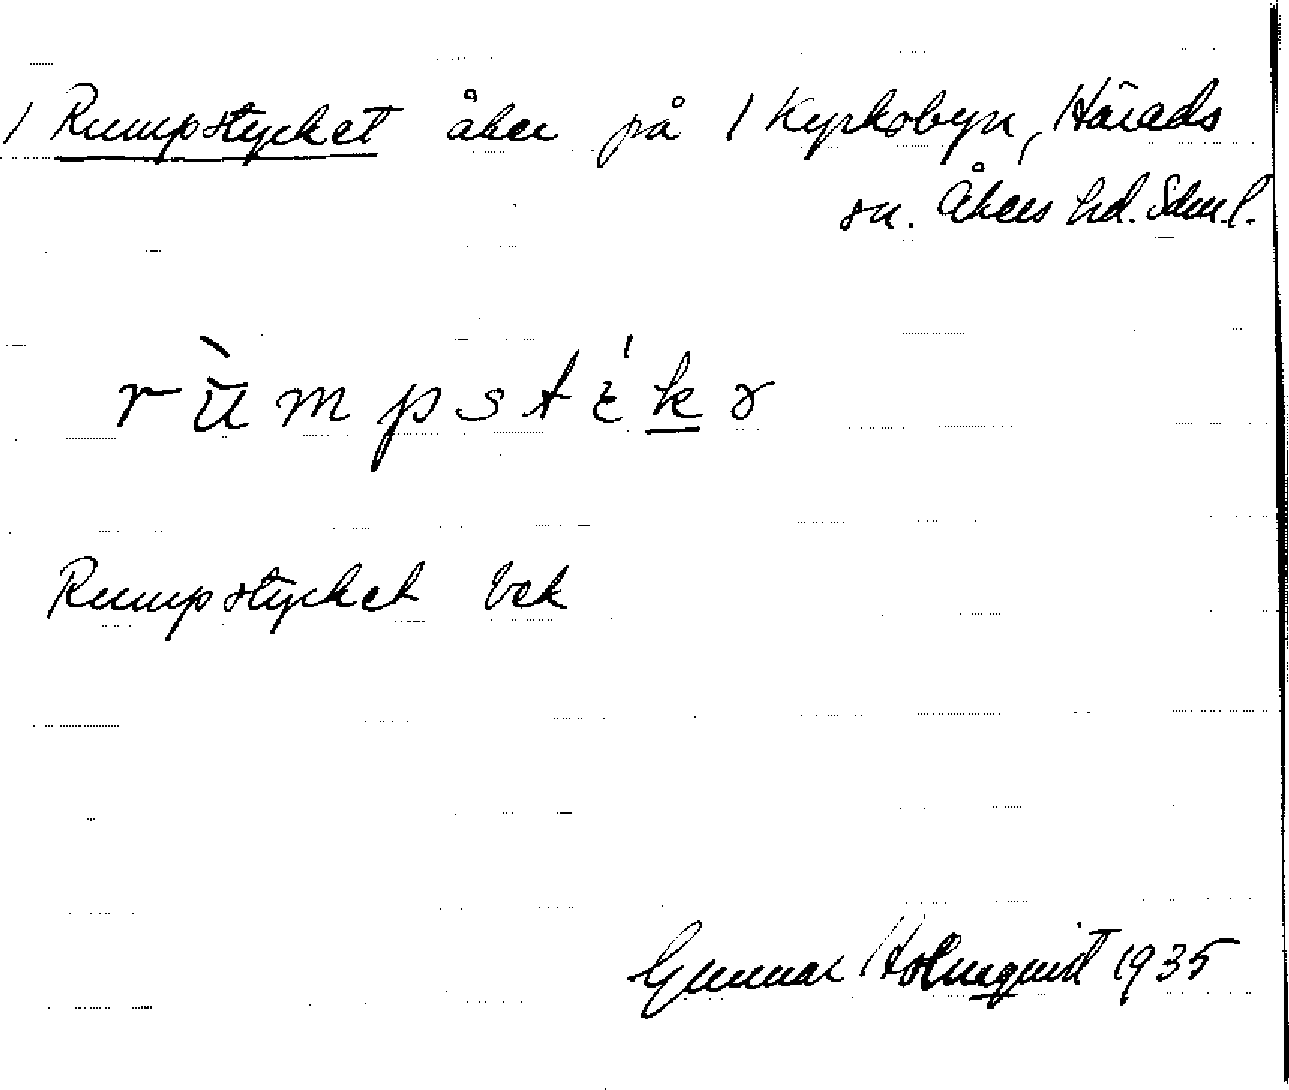 / Rumpstycket åker på / Kyrkobyn, Härads
sn. Åkers hd. Sdm.l.
rùmpstɛ́kə
Rumpstycket bet
Gunnar Holmqvist 1935